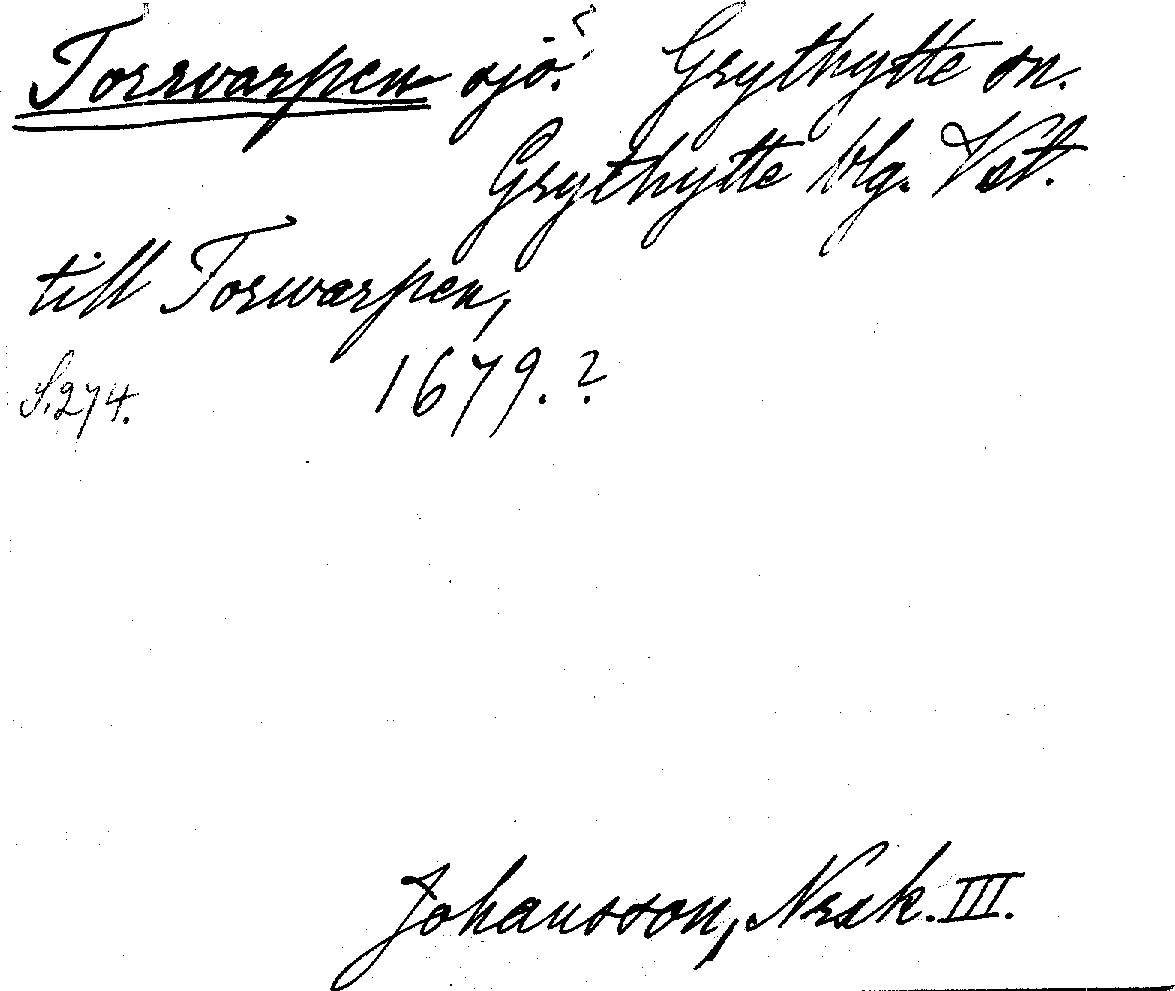 Torrvarpen sjö? Grythytte sn.
Grythytte blg. Vstm.
till Torwarpen,
S. 274. 1679. ?
Johansson, Norsk. III.